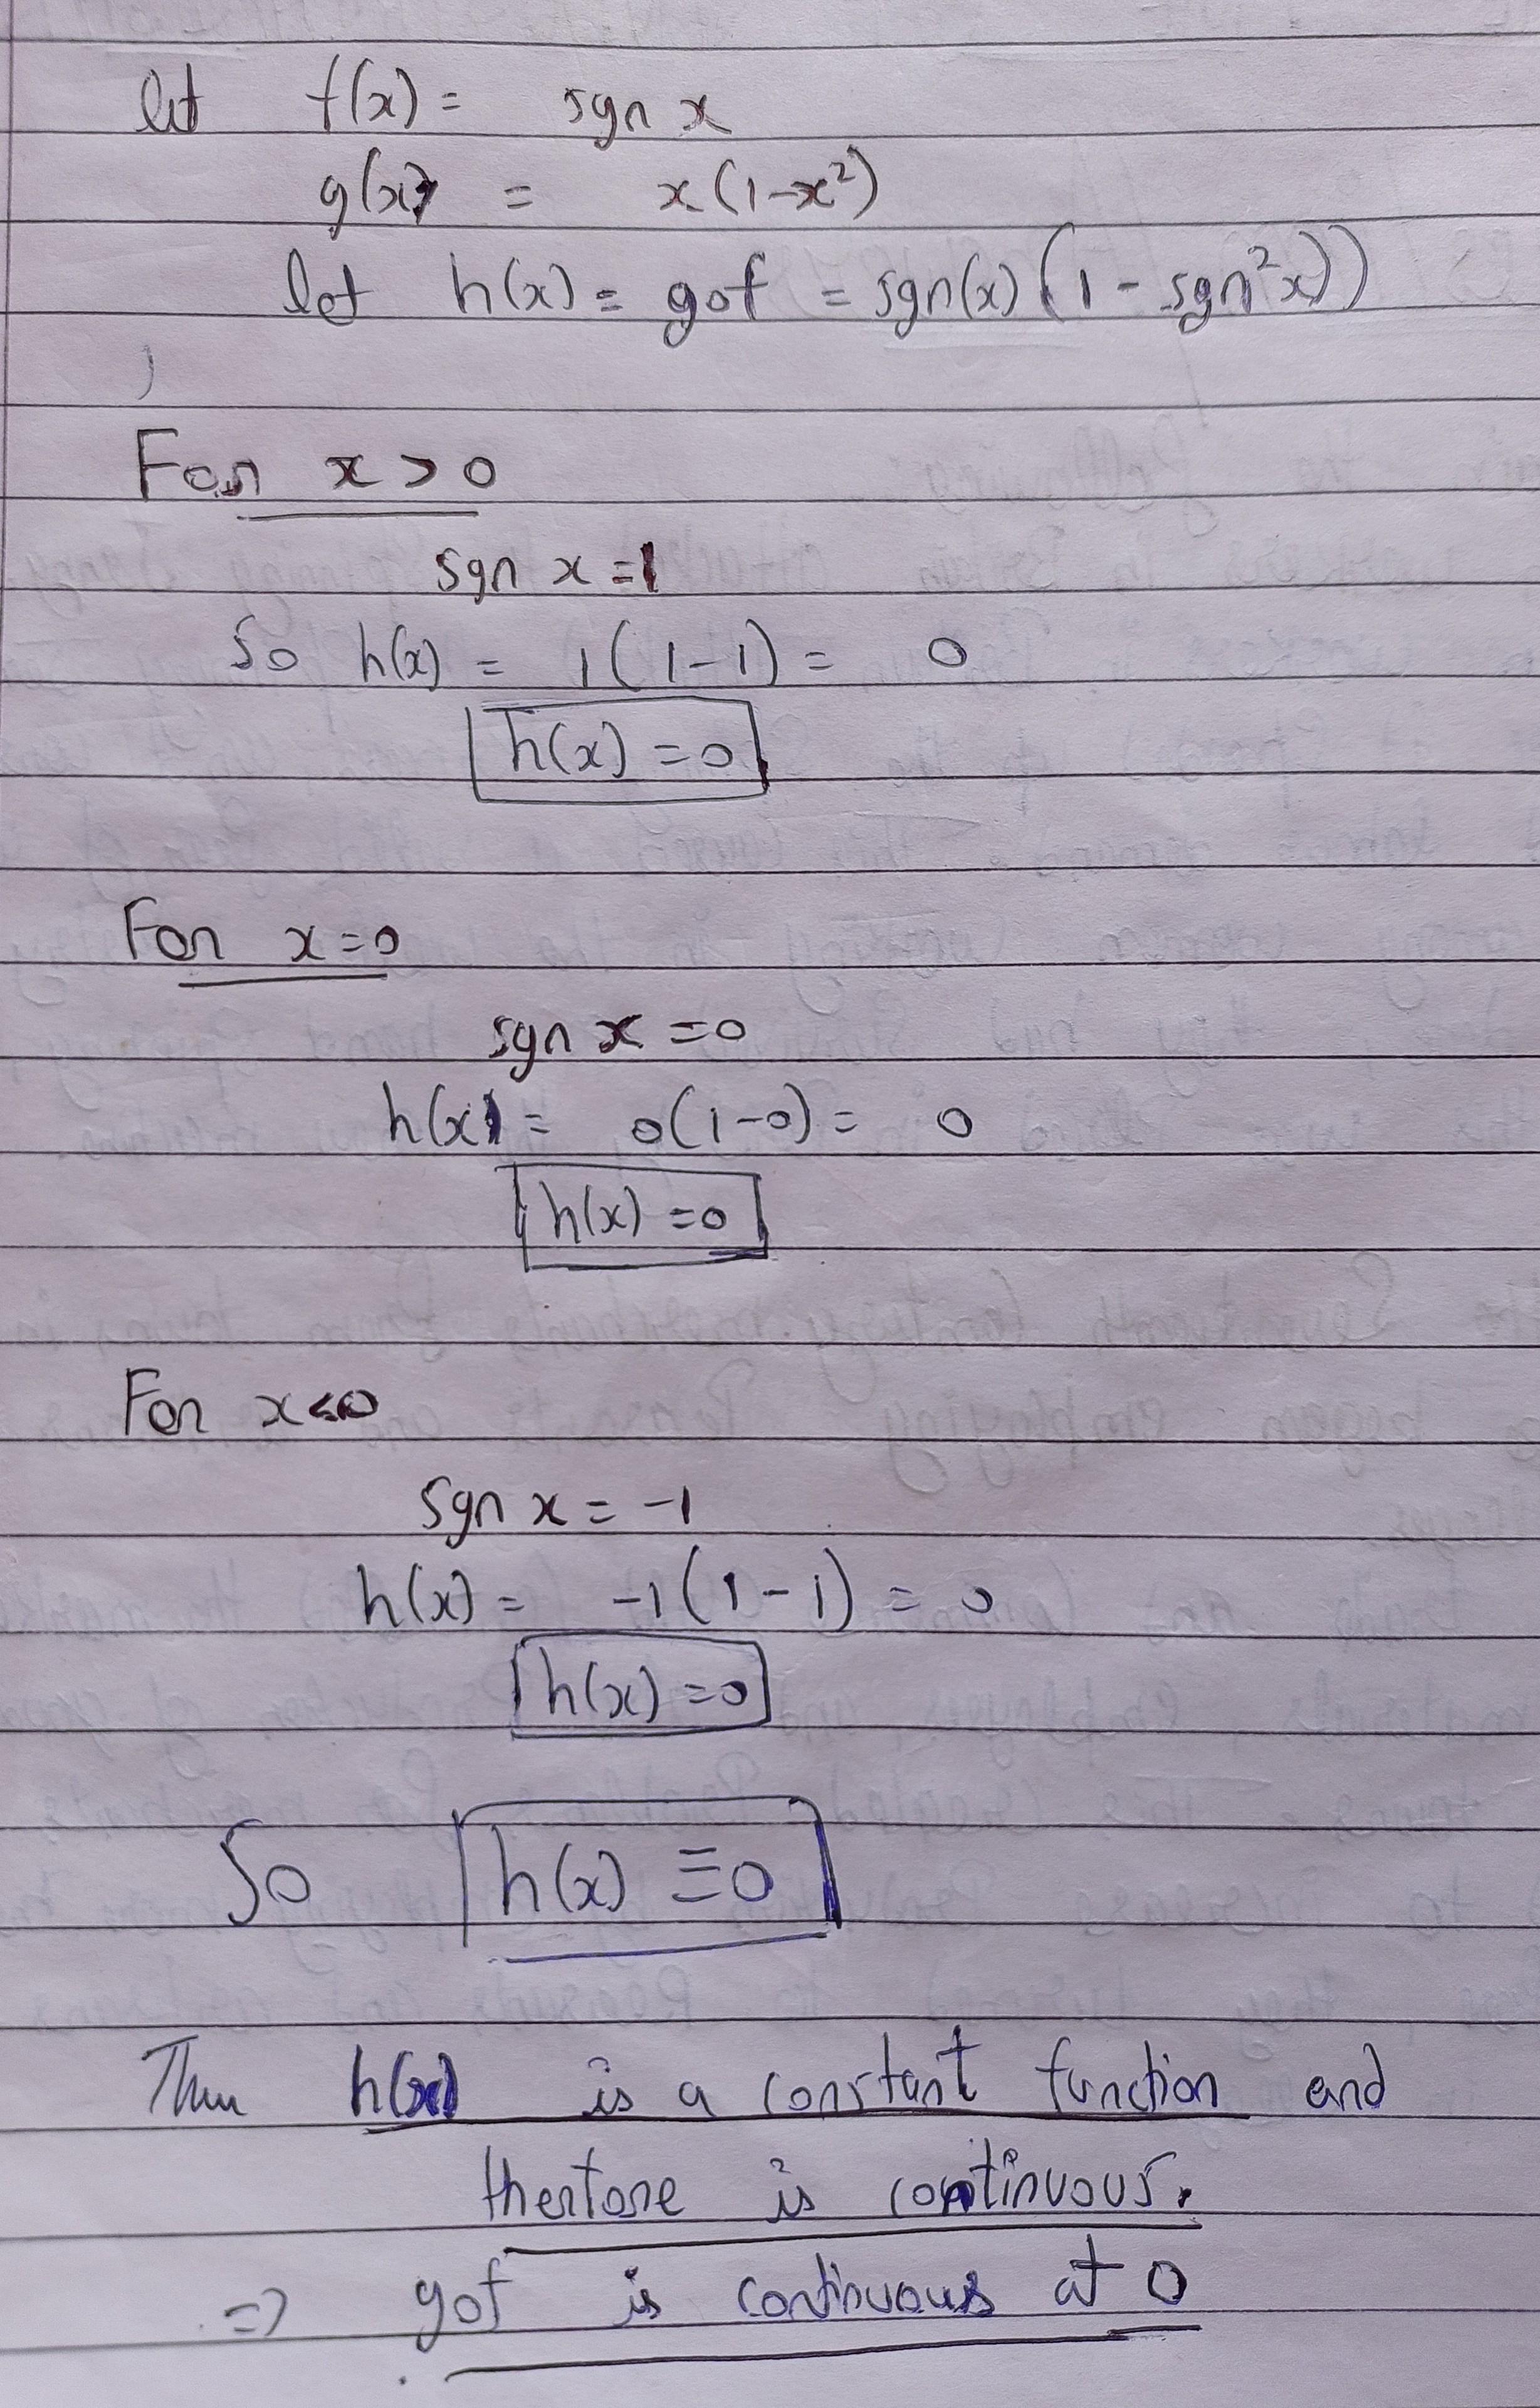 let f(x) = sgn x
g(x) = x(1-x²)
let h(x) = gof = sgn(x)(1 - sgn²x))
For x > 0
sgn x = 1
So h(x) = 1(1-1) = 0
h(x) = 0
For x = 0
sgn x = 0
h(x) = 0(1-0) = 0
h(x) = 0
For x < 0
sgn x = -1
h(x) = -1(1-1) = 0
h(x) = 0
So h(x) ≡ 0
Then h(x) is a constant function and
therfore is continuous.
⇒ gof is continuous at 0